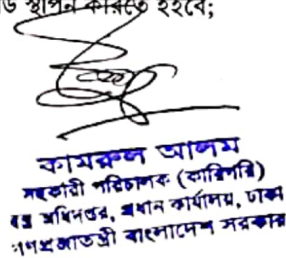 স্থাপন করিতে হইবে;
কামরুল আলম
সহকারী পরিচালক (কারিগরি)
বস্ত্র অধিদপ্তর, প্রধান কার্যালয়, ঢাকা
গণপ্রজাতন্ত্রী বাংলাদেশ সরকার